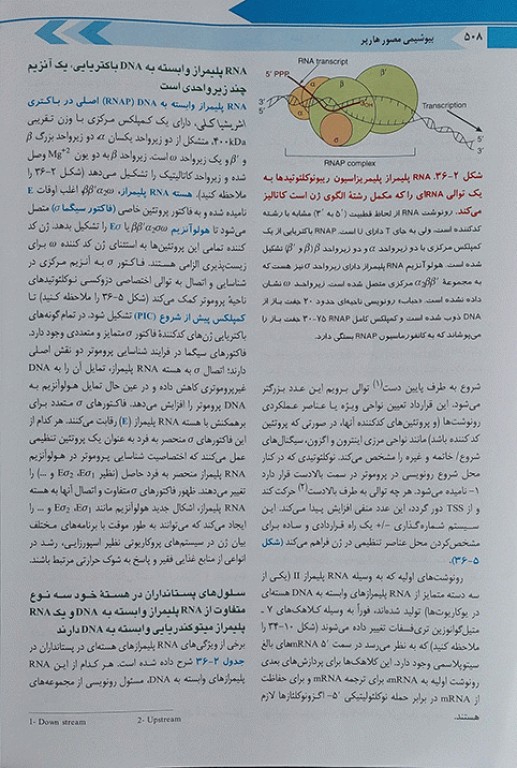 ۵۰۸
بیوشیمی مصور هارپر
RNA transcript
5′ PPP
β
β′
α
α
σ
OH
3′
5′
Transcription
3′
5′
RNAP complex
شکل ۲-۳۶. RNA پلیمراز پلیمریزاسیون ریبونوکلئوتیدها به
یک توالی RNAای را که مکمل رشتهٔ الگوی ژن است کاتالیز
می‌کند. رونوشت RNA از لحاظ قطبیت (۵′ به ۳′) مشابه با رشته
کدکننده است، ولی به جای T دارای U است. RNAP باکتریایی از یک
کمپلکس مرکزی با دو زیرواحد α و دو زیرواحد β (β و β′) تشکیل
شده است. هولوآنزیم RNA پلیمراز دارای زیرواحد σ نیز هست که
به مجموعهٔ α₂ββ′ مرکزی متصل شده است. زیرواحد ω نشان
داده نشده است. «حباب» رونویسی ناحیه‌ای حدود ۲۰ جفت باز از
DNA ذوب شده است و کمپلکس کامل RNAP ۳۰-۷۵ جفت باز را
می‌پوشاند که به کانفورماسیون RNAP بستگی دارد.
شروع به طرف پایین دست(۱) توالی برویم این عدد بزرگتر
می‌شود. این قرارداد تعیین نواحی ویژه یا عناصر عملکردی
رونوشت‌ها (و پروتئین‌های کدکننده آنها، در صورتی که پروتئین
کد کننده باشد) مانند نواحی مرزی اینترون و اگزون، سیگنال‌های
شروع/ خاتمه و غیره را مشخص می‌کند. نوکلئوتیدی که در کنار
محل شروع رونویسی در پروموتر در سمت بالادست قرار دارد
۱- نامیده می‌شود. هر چه توالی به طرف بالادست(۲) حرکت کند
و از TSS دور گردد، این عدد منفی افزایش پیدا می‌کند. این
سیستم شماره‌گذاری -/+ یک راه قراردادی و ساده برای
مشخص‌کردن محل عناصر تنظیمی در ژن فراهم می‌کند (شکل
۵-۳۶).
رونوشت‌های اولیه که به وسیله RNA پلیمراز II (یکی از
سه دسته متمایز از RNA پلیمرازهای وابسته به DNA هسته‌ای
در یوکاریوت‌ها) تولید شده‌اند، فوراً به وسیله کلاهک‌های ۷ ـ
متیل‌گوانوزین تری‌فسفات تغییر داده می‌شوند (شکل ۱۰-۳۴ را
ملاحظه کنید) که به نظر می‌رسد در سمت ۵′ mRNAهای بالغ
سیتوپلاسمی وجود دارد. این کلاهک‌ها برای پردازش‌های بعدی
رونوشت اولیه به mRNA، برای ترجمه mRNA و برای حفاظت
از mRNA در برابر حمله نوکلئولیتیکی ۵′- اگزونوکلئازها لازم
هستند.
RNA پلیمراز وابسته به DNA باکتریایی، یک آنزیم
چند زیرواحدی است
RNA پلیمراز وابسته به DNA (RNAP) اصلی در باکتری
اشریشیا کلی، دارای یک کمپلکس مرکزی با وزن تقریبی
۴۰۰kDa، متشکل از دو زیرواحد یکسان α، دو زیرواحد بزرگ β
و β′ و یک زیرواحد ω است. زیرواحد β به دو یون Mg²⁺ وصل
شده و زیرواحد کاتالیتیک را تشکیل می‌دهد (شکل ۲-۳۶ را
ملاحظه کنید). هسته RNA پلیمراز، ββ′α₂ω اغلب اوقات E
نامیده شده و به فاکتور پروتئین خاصی (فاکتور سیگما σ) متصل
می‌شود تا هولوآنزیم ββ′α₂ωσ یا Eσ را تشکیل بدهد. ژن کد
کننده تمامی این پروتئین‌ها به استثنای ژن کد کننده ω برای
زیست‌پذیری الزامی هستند. فاکتور σ به آنزیم مرکزی در
شناسایی و اتصال به توالی اختصاصی دزوکسی نوکلئوتیدهای
ناحیهٔ پروموتر کمک می‌کند (شکل ۵-۳۶ را ملاحظه کنید) تا
کمپلکس پیش از شروع (PIC) تشکیل شود. در تمام گونه‌های
باکتریایی ژن‌های کدکنندهٔ فاکتور σ متمایز و متعددی وجود دارد.
فاکتورهای سیگما در فرایند شناسایی پروموتر دو نقش اصلی
دارند؛ اتصال σ به هسته RNA پلیمراز، تمایل آن را به DNA
غیرپروموتری کاهش داده و در عین حال تمایل هولوآنزیم به
DNA پروموتر را افزایش می‌دهد. فاکتورهای σ متعدد برای
برهمکنش با هسته RNA پلیمراز (E) رقابت می‌کنند. هر کدام از
این فاکتورهای σ منحصر به فرد به عنوان یک پروتئین تنظیمی
عمل می‌کنند که اختصاصیت شناسایی پروموتر در هولوآنزیم
RNA پلیمراز منحصر به فرد حاصل (نظیر Eσ₁، Eσ₂ و ...) را
تغییر می‌دهند. ظهور فاکتورهای σ متفاوت و اتصال آنها به هسته
RNA پلیمراز، اشکال جدید هولوآنزیم مانند Eσ₁، Eσ₂ و ... را
ایجاد می‌کند که می‌توانند به طور موقت با برنامه‌های مختلف
بیان ژن در سیستم‌های پروکاریوتی نظیر اسپورزایی، رشد در
انواعی از منابع غذایی فقیر و پاسخ به شوک حرارتی مرتبط باشند.
سلول‌های پستانداران در هستهٔ خود سه نوع
متفاوت از RNA پلیمراز وابسته به DNA و یک RNA
پلیمراز میتوکندریایی وابسته به DNA دارند
برخی از ویژگی‌های RNA پلیمرازهای هسته‌ای پستانداران در
جدول ۲-۳۶ شرح داده شده است. هر کدام از این RNA
پلیمرازهای وابسته به DNA، مسئول رونویسی از مجموعه‌های
1- Down stream
2- Upstream